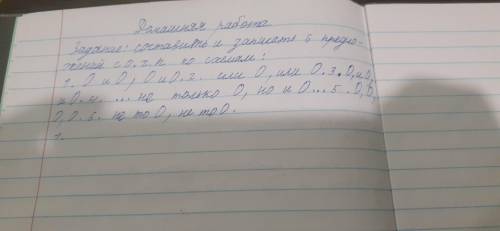 Домашняя работа
Задание: составить и записать 6 предло-
жений с о.ч.п. по схемам:
1. О и О, О и О. 2. или О, или О. 3. О, и О,
и О. 4. ... не только О, но и О... 5. О, О,
О, О. 6. не то О, не то О.
1.